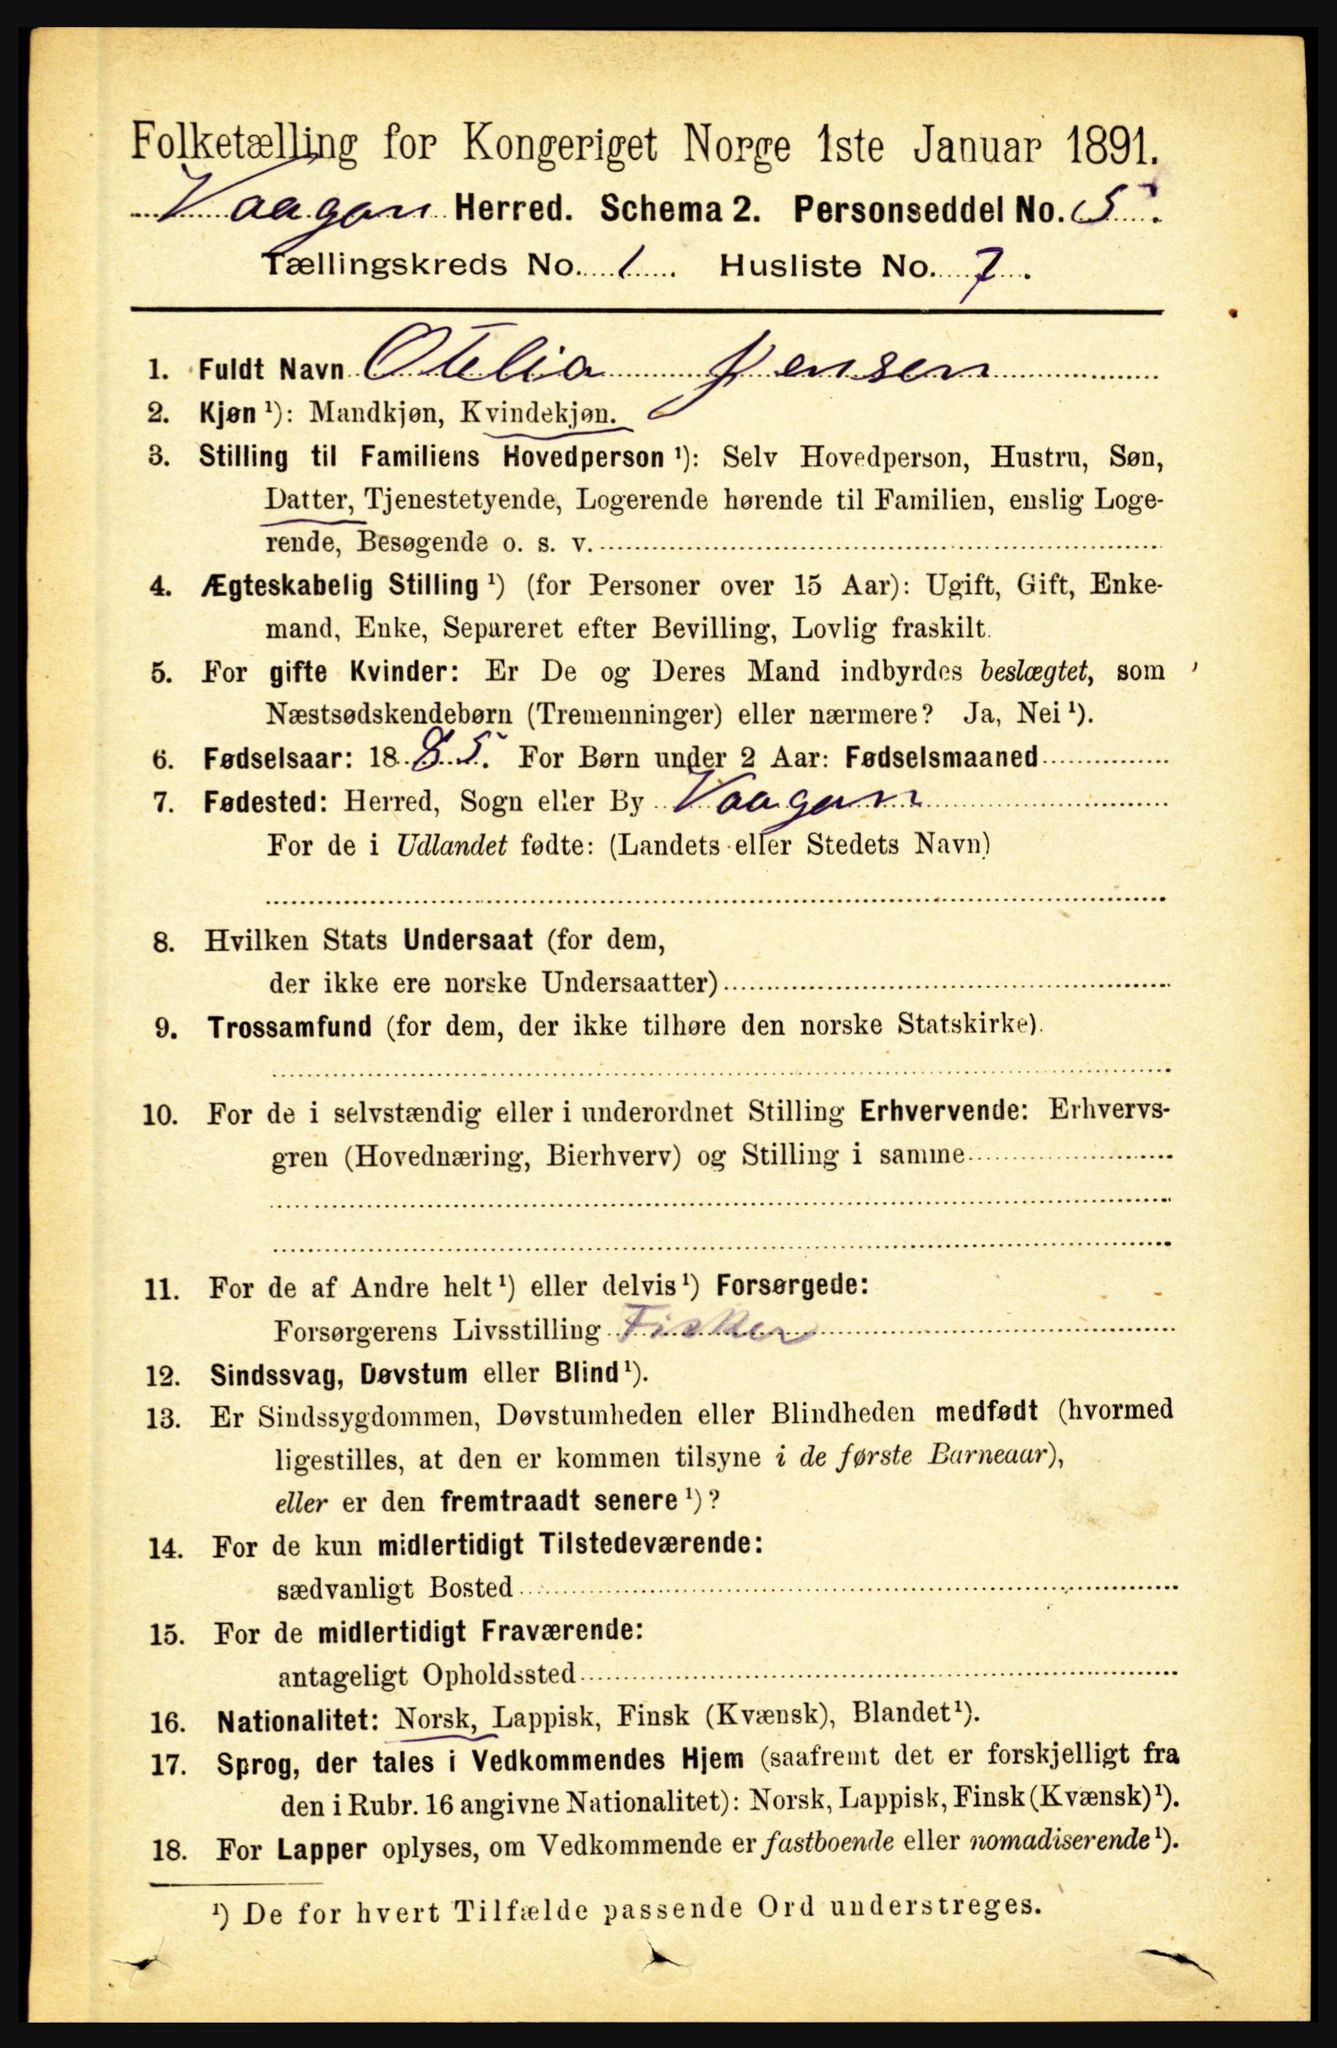 Folketælling for Kongeriget Norge 1ste Januar 1891.
Vaagan Herred. Schema 2. Personseddel No. 5.
Tællingskreds No. 1. Husliste No. 7.
1. Fuldt Navn Otelia Jensen
2. Kjøn ¹): Mandkjøn, Kvindekjøn.
3. Stilling til Familiens Hovedperson ¹): Selv Hovedperson, Hustru, Søn,
Datter, Tjenestetyende, Logerende hørende til Familien, enslig Loge-
rende, Besøgende o. s. v.
4. Ægteskabelig Stilling ¹) (for Personer over 15 Aar): Ugift, Gift, Enke-
mand, Enke, Separeret efter Bevilling, Lovlig fraskilt.
5. For gifte Kvinder: Er De og Deres Mand indbyrdes beslægtet, som
Næstsødskendebørn (Tremenninger) eller nærmere? Ja, Nei ¹).
6. Fødselsaar: 1885. For Børn under 2 Aar: Fødselsmaaned
7. Fødested: Herred, Sogn eller By Vaagan
For de i Udlandet fødte: (Landets eller Stedets Navn)
8. Hvilken Stats Undersaat (for dem,
der ikke ere norske Undersaatter)
9. Trossamfund (for dem, der ikke tilhøre den norske Statskirke).
10. For de i selvstændig eller i underordnet Stilling Erhvervende: Erhvervs-
gren (Hovednæring, Bierhverv) og Stilling i samme
11. For de af Andre helt ¹) eller delvis ¹) Forsørgede:
Forsørgerens Livsstilling Fisker
12. Sindssvag, Døvstum eller Blind ¹).
13. Er Sindssygdommen, Døvstumheden eller Blindheden medfødt (hvormed
ligestilles, at den er kommen tilsyne i de første Barneaar),
eller er den fremtraadt senere ¹)?
14. For de kun midlertidigt Tilstedeværende:
sædvanligt Bosted
15. For de midlertidigt Fraværende:
antageligt Opholdssted
16. Nationalitet: Norsk, Lappisk, Finsk (Kvænsk), Blandet ¹).
17. Sprog, der tales i Vedkommendes Hjem (saafremt det er forskjelligt fra
den i Rubr. 16 angivne Nationalitet): Norsk, Lappisk, Finsk (Kvænsk) ¹).
18. For Lapper oplyses, om Vedkommende er fastboende eller nomadiserende ¹).
¹) De for hvert Tilfælde passende Ord understreges.